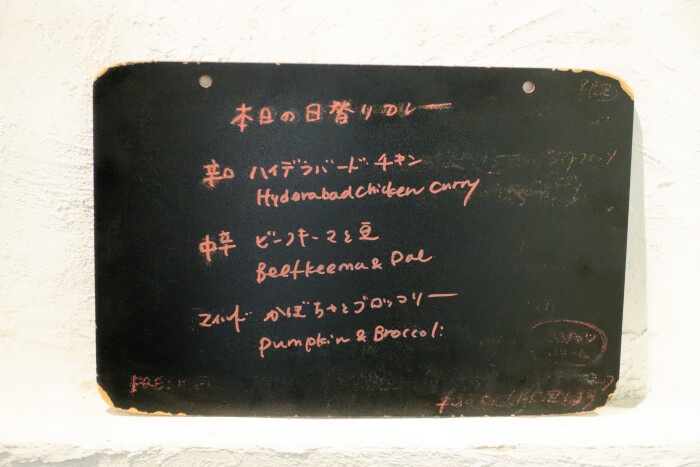 本日の日替りカレー
辛口 ハイデラバードチキン
Hyderabad chicken curry
中辛 ビーフキーマと豆
Beef keema & Dal
マイルド かぼちゃとブロッコリー
Pumpkin & Broccoli